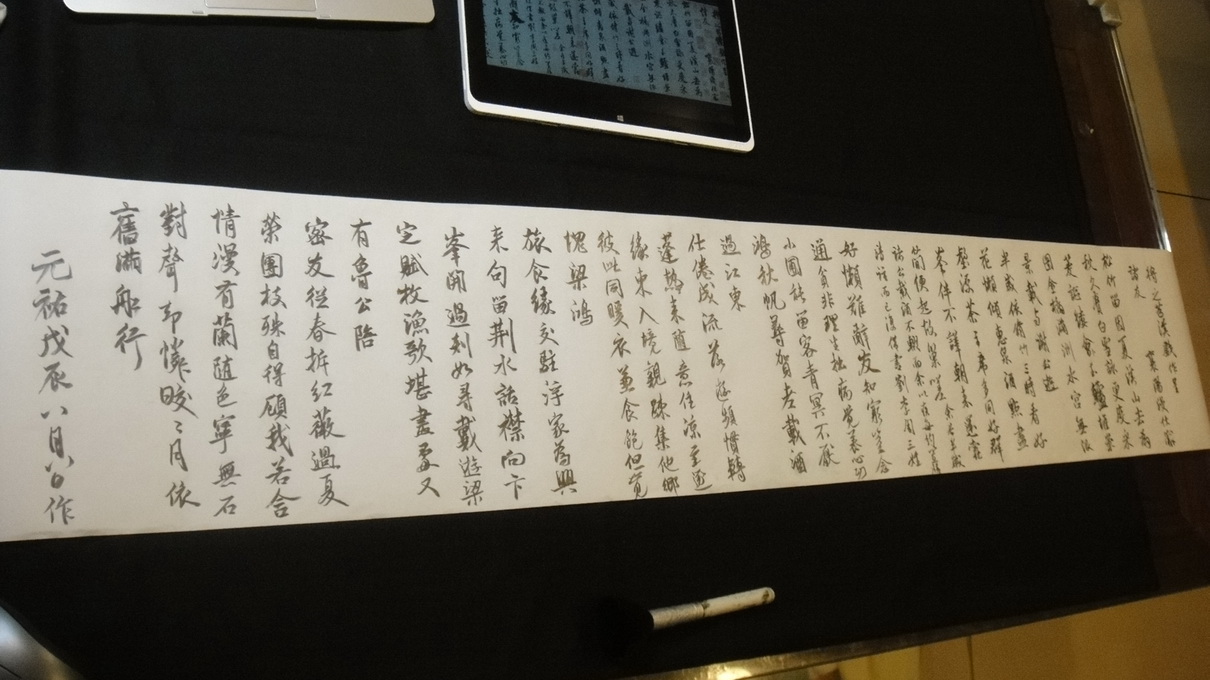 將之苕溪戲作呈
諸友 襄陽漫仕黻
松竹留因夏溪山去為
秋久賡白雪詠更度采
菱謳縷會玉鱸堆案
團金橘滿洲水宮無限
景載与謝公遊
半歲依修竹三時看好
花懶傾惠泉酒點盡
壑源茶主席多同好群
峯伴不譁朝來還蠹
簡便起故巢嗟余居半歲
諸公載酒不輟而余以疾每約置膳
清話而已復借書劉李周三姓
好懶難辭友知窮豈念
通貧非理生拙病覺養心功
小圃能留客青冥不厭
鴻秋帆尋賀老載酒
過江東
仕倦成流落遊頻慣轉
蓬熱來隨意住涼至逐
緣東入境親疎集他鄉
彼此同暖衣兼食飽但覺
愧梁鴻
旅食緣交駐浮家為興
来句留荊水話襟向卞
峯開過剡如尋戴遊梁
定賦枚漁歌堪畫處又
有魯公陪
密友從春拆紅薇過夏
榮團枝殊自得顧我若含
情漫有蘭隨色寧無石
對聲却憐皎〻月依
舊滿船行
元祐戊辰八月八日作